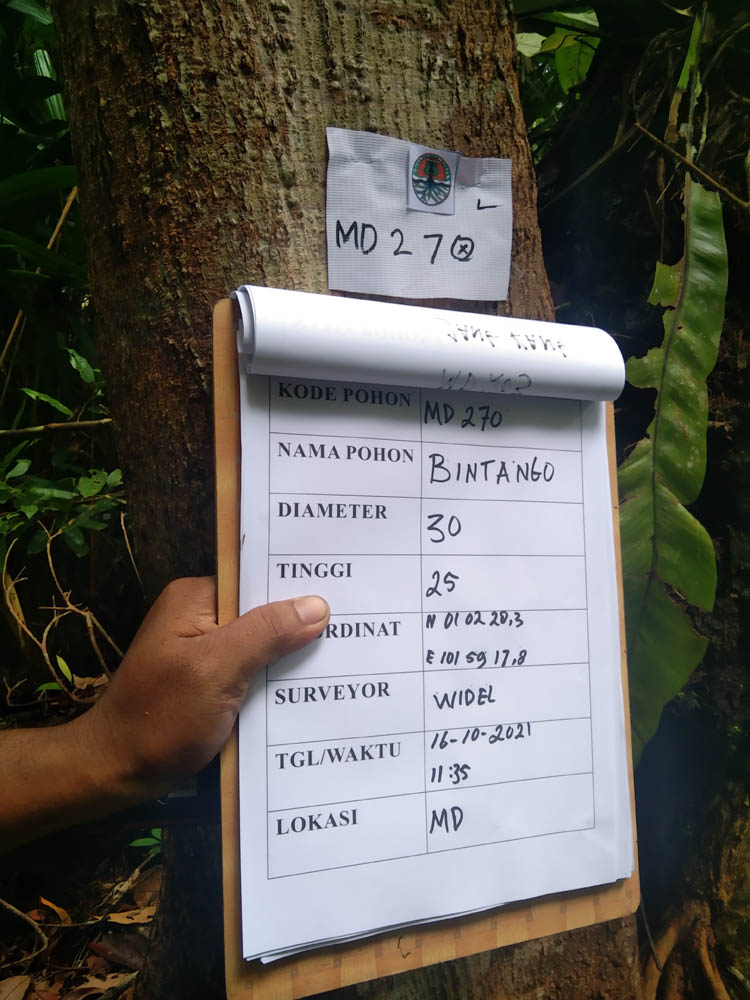 MD 270
KODE POHON MD 270
NAMA POHON BINTANGO
DIAMETER 30
TINGGI 25
ORDINAT N 01 02 28,3
E 101 59 17,8
SURVEYOR WIDEL
TGL/WAKTU 16-10-2021
11:35
LOKASI MD